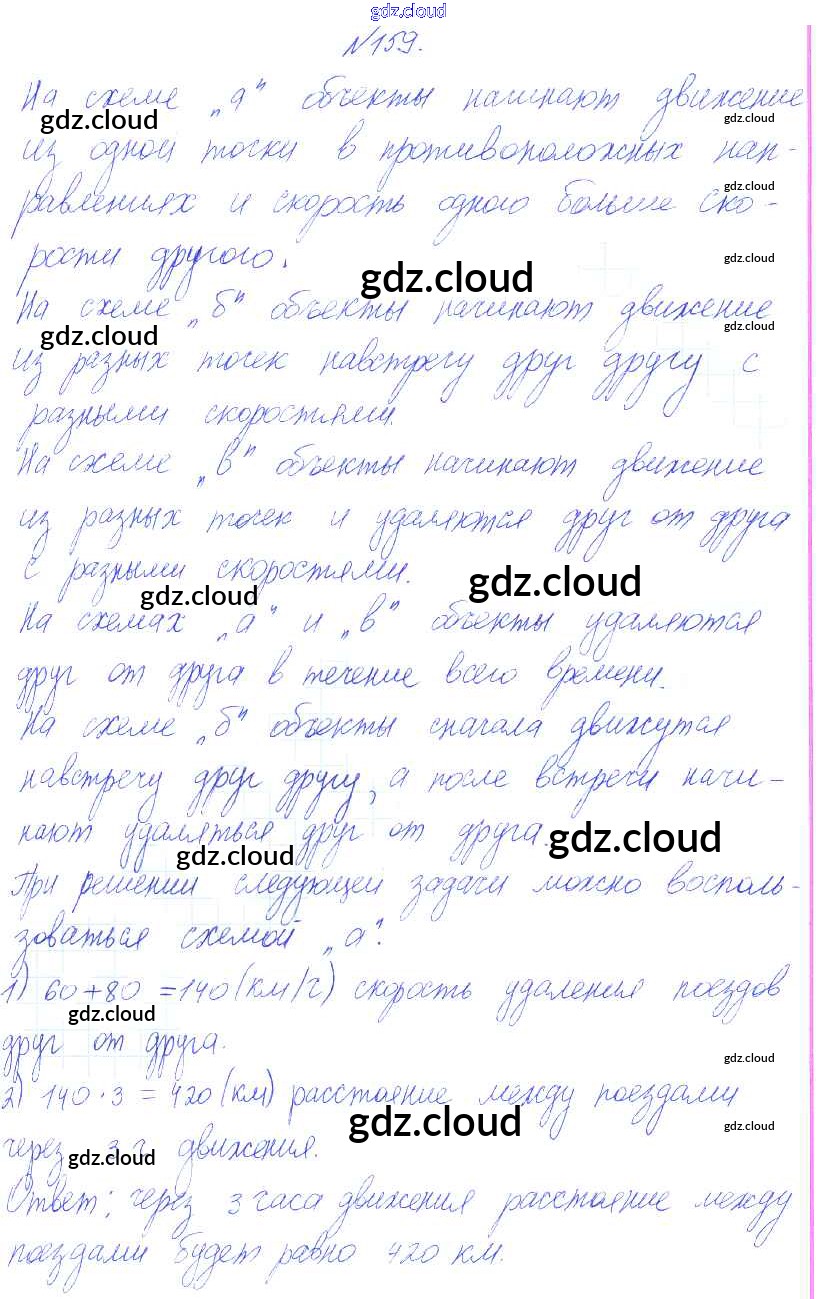 gdz.cloud
№159.
На схеме „а" объекты начинают движение
gdz.cloud gdz.cloud
из одной точки в противоположных нап-
gdz.cloud
равлениях и скорость одного больше ско-
рости другого.
gdz.cloud gdz.cloud
На схеме „б" объекты начинают движение
gdz.cloud gdz.cloud
из разных точек навстречу друг другу с
разными скоростями.
На схеме „в" объекты начинают движение
из разных точек и удаляются друг от друга
с разными скоростями.
gdz.cloud gdz.cloud
На схемах „а" и „в" объекты удаляются
друг от друга в течение всего времени.
На схеме „б" объекты сначала движутся
навстречу друг другу, а после встречи начи-
нают удаляться друг от друга.
gdz.cloud gdz.cloud
При решении следующей задачи можно восполь-
зоваться схемой „а".
1) 60+80 =140 (км/ч) скорость удаления поездов
gdz.cloud
друг от друга.
gdz.cloud
2) 140·3 = 420 (км) расстояние между поездами
gdz.cloud gdz.cloud
через 3 ч движения.
gdz.cloud
Ответ: через 3 часа движения расстояние между
поездами будет равно 420 км.